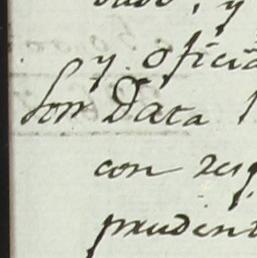 y oficia
Son Data
con res
prudent